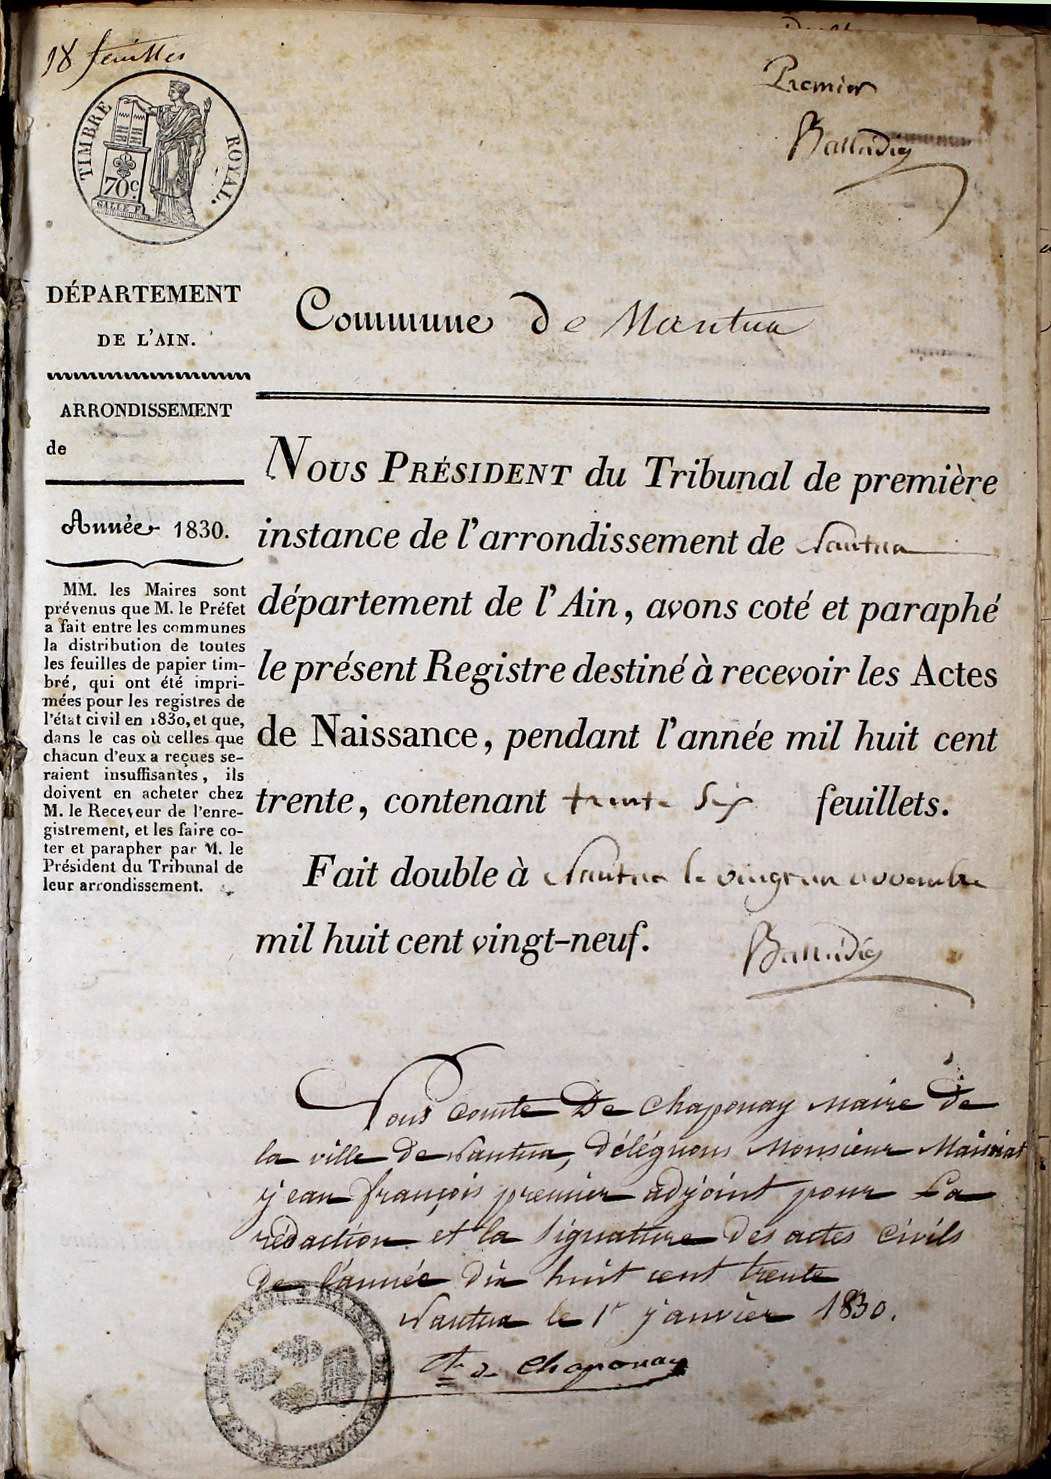 18 feuilles
Premier
TIMBRE ROYAL.
70c
DÉPARTEMENT
DE L'AIN.
Commune de Nantua
ARRONDISSEMENT
de
Année 1830.
MM. les Maires sont
prévenus que M. le Préfet
a fait entre les communes
la distribution de toutes
les feuilles de papier tim-
bré, qui ont été impri-
mées pour les registres de
l'état civil en 1830, et que,
dans le cas où celles que
chacun d'eux a reçues se-
raient insuffisantes, ils
doivent en acheter chez
M. le Receveur de l'enre-
gistrement, et les faire co-
ter et parapher par M. le
Président du Tribunal de
leur arrondissement.
NOUS PRÉSIDENT du Tribunal de première
instance de l'arrondissement de Nantua
département de l'Ain, avons coté et paraphé
le présent Registre destiné à recevoir les Actes
de Naissance, pendant l'année mil huit cent
trente, contenant trente six feuillets.
Fait double à Nantua le vingt un novembre
mil huit cent vingt-neuf.
Nous comte De Chaponay maire de
la ville de Nantua, délégnons Monsieur Maissiat
jean françois premier adjoint pour La
rédaction et la signature des actes civils
De l'année dix huit cent trente
Nantua le 1r janvier 1830.
Cte de Chaponay